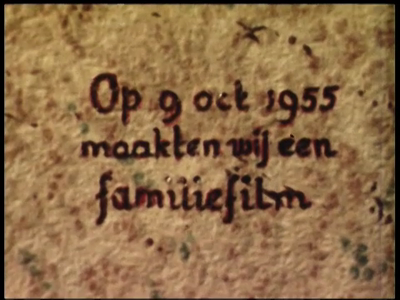 Op 9 oct 1955
maakten wij een
familiefilm